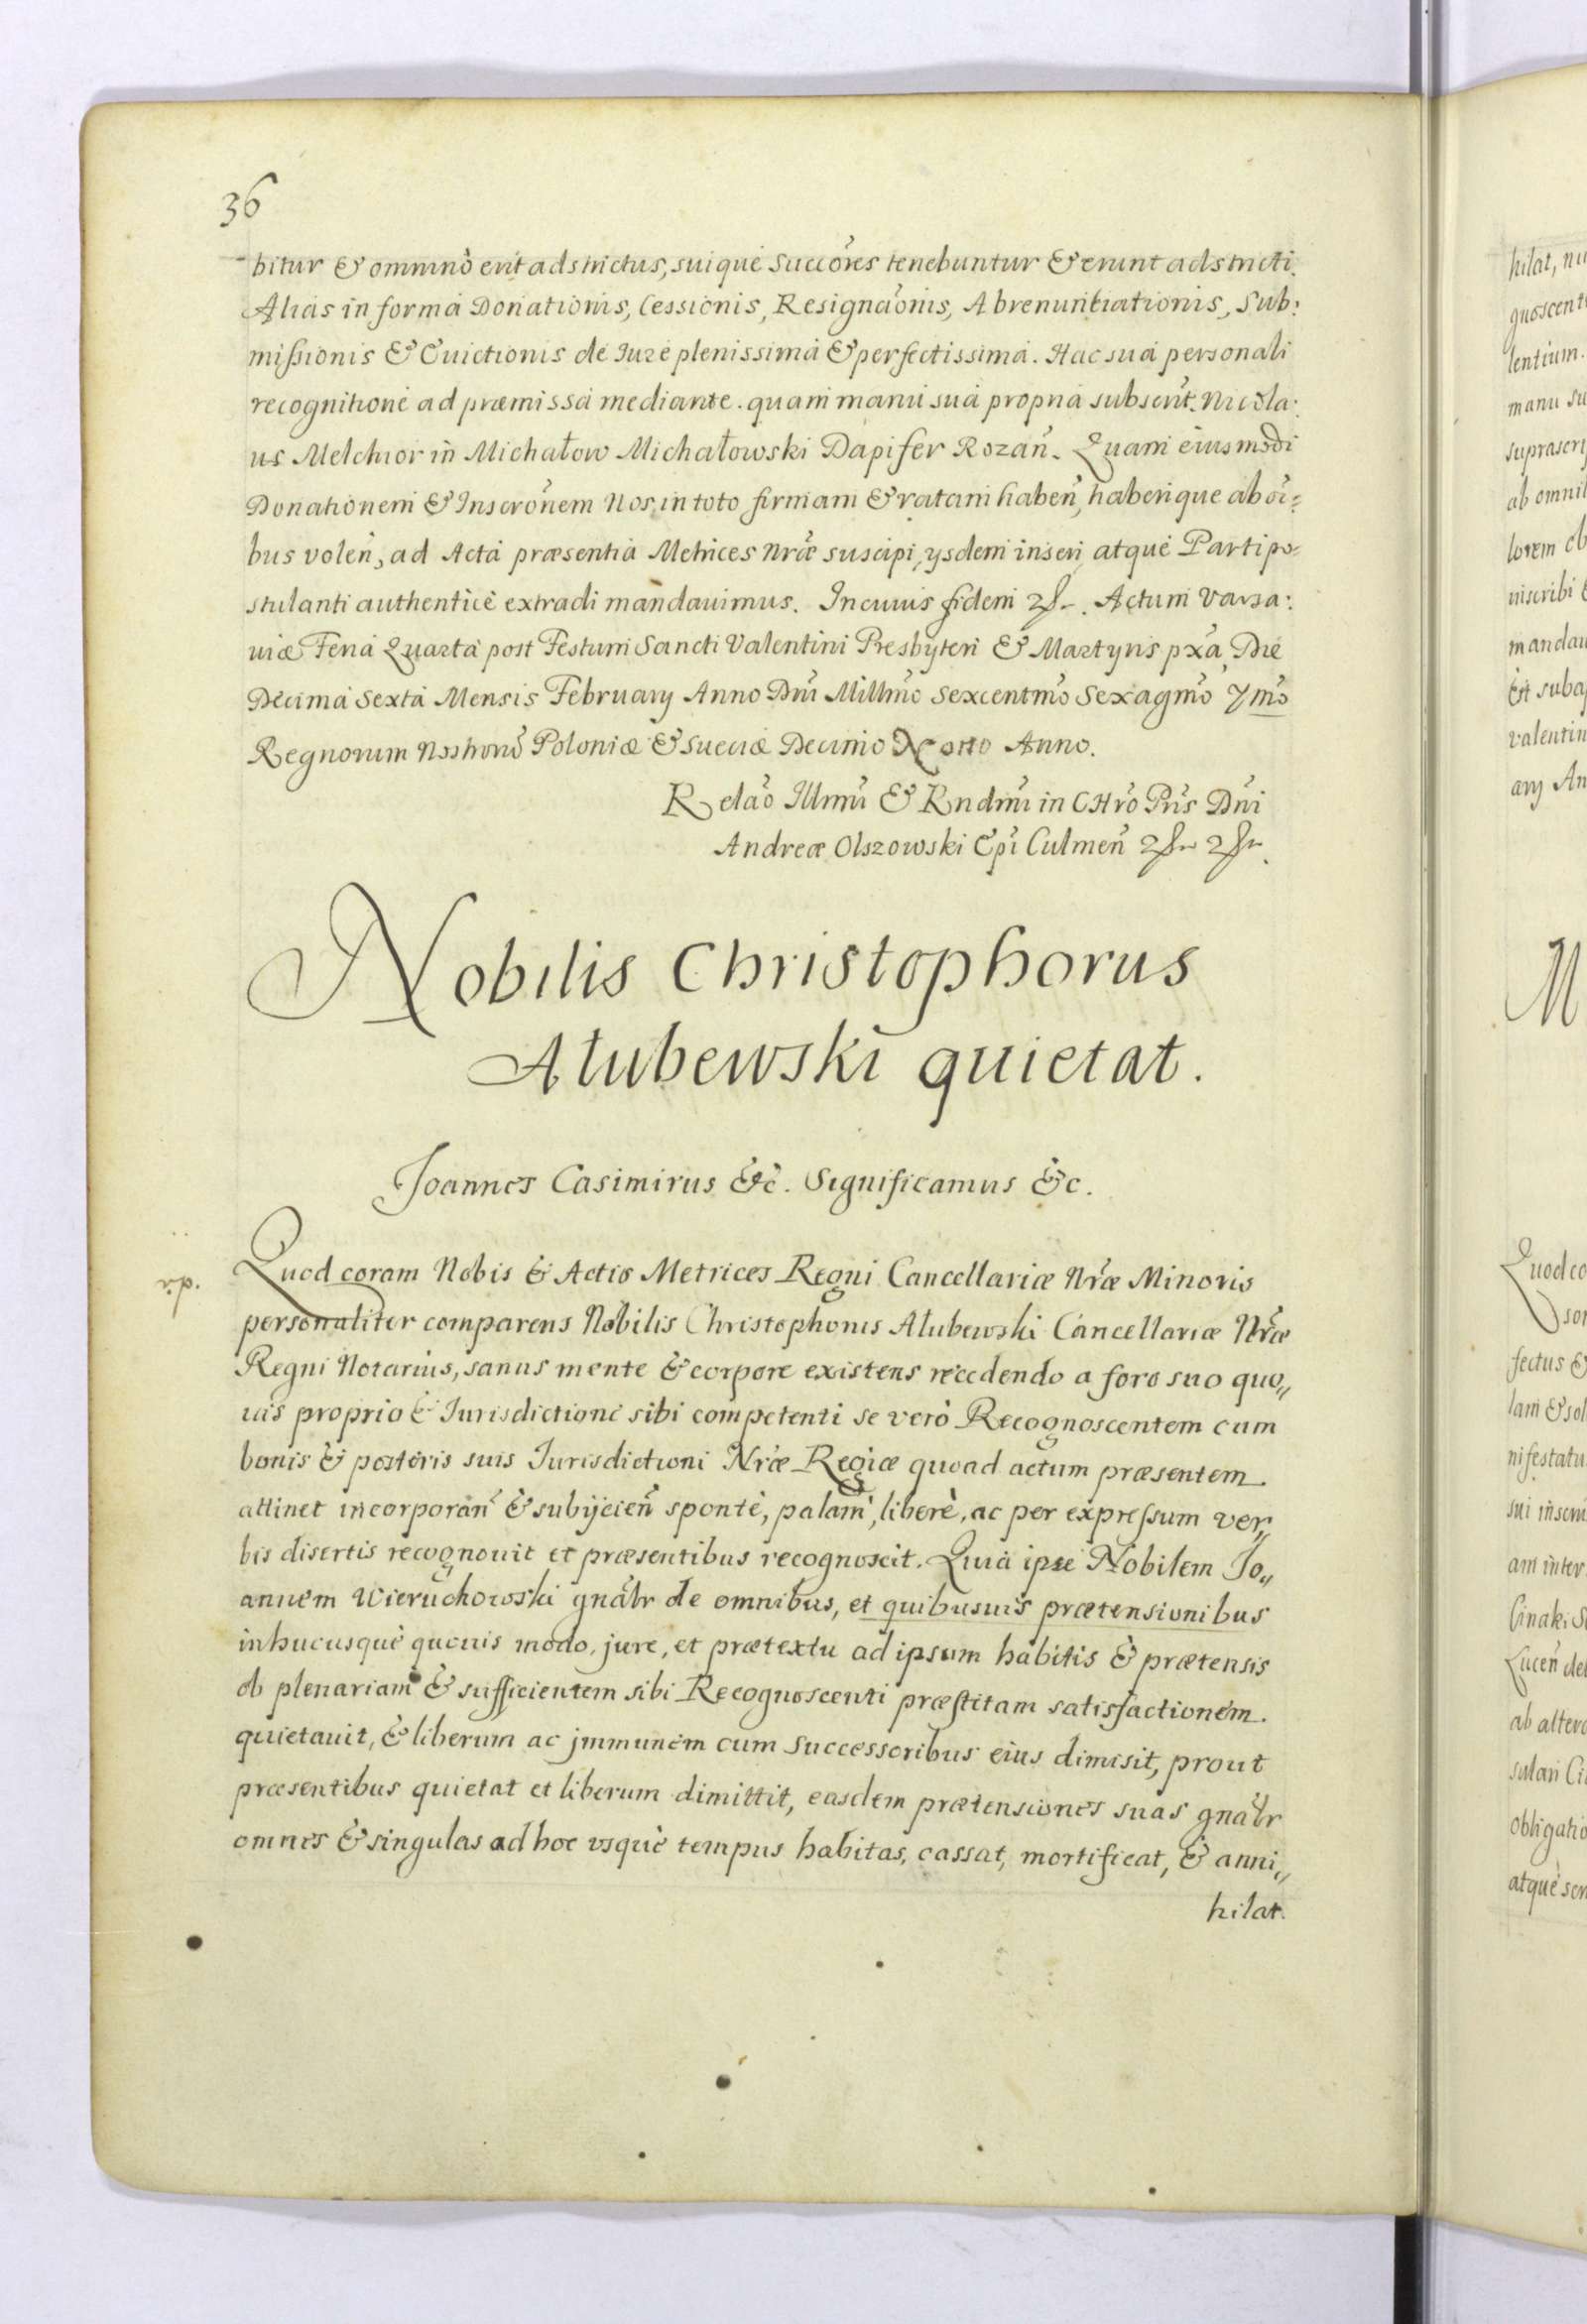 36
bitur & omninò erit adstrictus, suique Succóres tenebuntur & erunt adstricti.
Alias in forma Donationis, Cessionis, Resignaõnis, Abrenuntiationis, Sub:
missionis & Euictionis de Iure plenissima & perfectissima. Hac sua personali
recognitione ad præmissa mediante. quam manu sua propria subscrit. Nicola:
us Melchior in Michałow Michałowski Dapifer Rozañ. Quam eiusmodi
Donationem & Inscrõnem Nos in toto firmam & ratam habeñ, haberique ab oi=
bus voleñ, ad Acta præsentia Metrices nræ suscipi, ysdem inseri, atque Parti po=
stulanti authenticè extradi mandauimus. In cuius fidem &. Actum Varsa:
uiæ Feria Quarta post Festum Sancti Valentini Presbyteri & Martyris pxã, Die
Decima Sexta Mensis February Anno Dni Millmo Sexcentmo Sexagmo 7mo
Regnorum Nostrorũ Poloniæ & Sueciæ Decimo Anno.
Relaõ Illmi & Rndmi in CHro Pris Dni
Andreæ Olszowski Epi Culmeñ
Nobilis Christophorus
Ałubewski quietat.
Joannes Casimirus &c. Significamus &c.
Quod coram Nobis & Actis Metrices Regni Cancellariæ Nræ Minoris
personaliter comparens Nobilis Christophorus Ałubewski Cancellariæ Nræ
Regni Notarius, sanus mente & corpore existens recedendo a foro suo quo„
uis proprio & Iurisdictione sibi competenti se verò Recognoscentem cum
bonis & posteris suis Iurisdictioni Nræ Regiæ quoad actum præsentem
attinet incorporañ & subijcieñ spontè, palam, liberè, ac per expressum ver„
bis disertis recognouit et præsentibus recognoscit. Quia ipse Nobilem Jo„
annem Wieruchowski gnãlr de omnibus, et quibusuis prætensionibus
inhucusque quouis modo, jure, et prætextu ad ipsum habitis & prætensis
ob plenariam & sufficientem sibi Recognoscenti præstitam satisfactionem.
quietauit, & liberum ac jmmunem cum Successoribus eius dimisit, prout
præsentibus quietat et liberum dimittit, easdem prætensiones suas gnãlr
omnes & singulas ad hoc vsque tempus habitas, cassat, mortificat, & anni„
hilat.